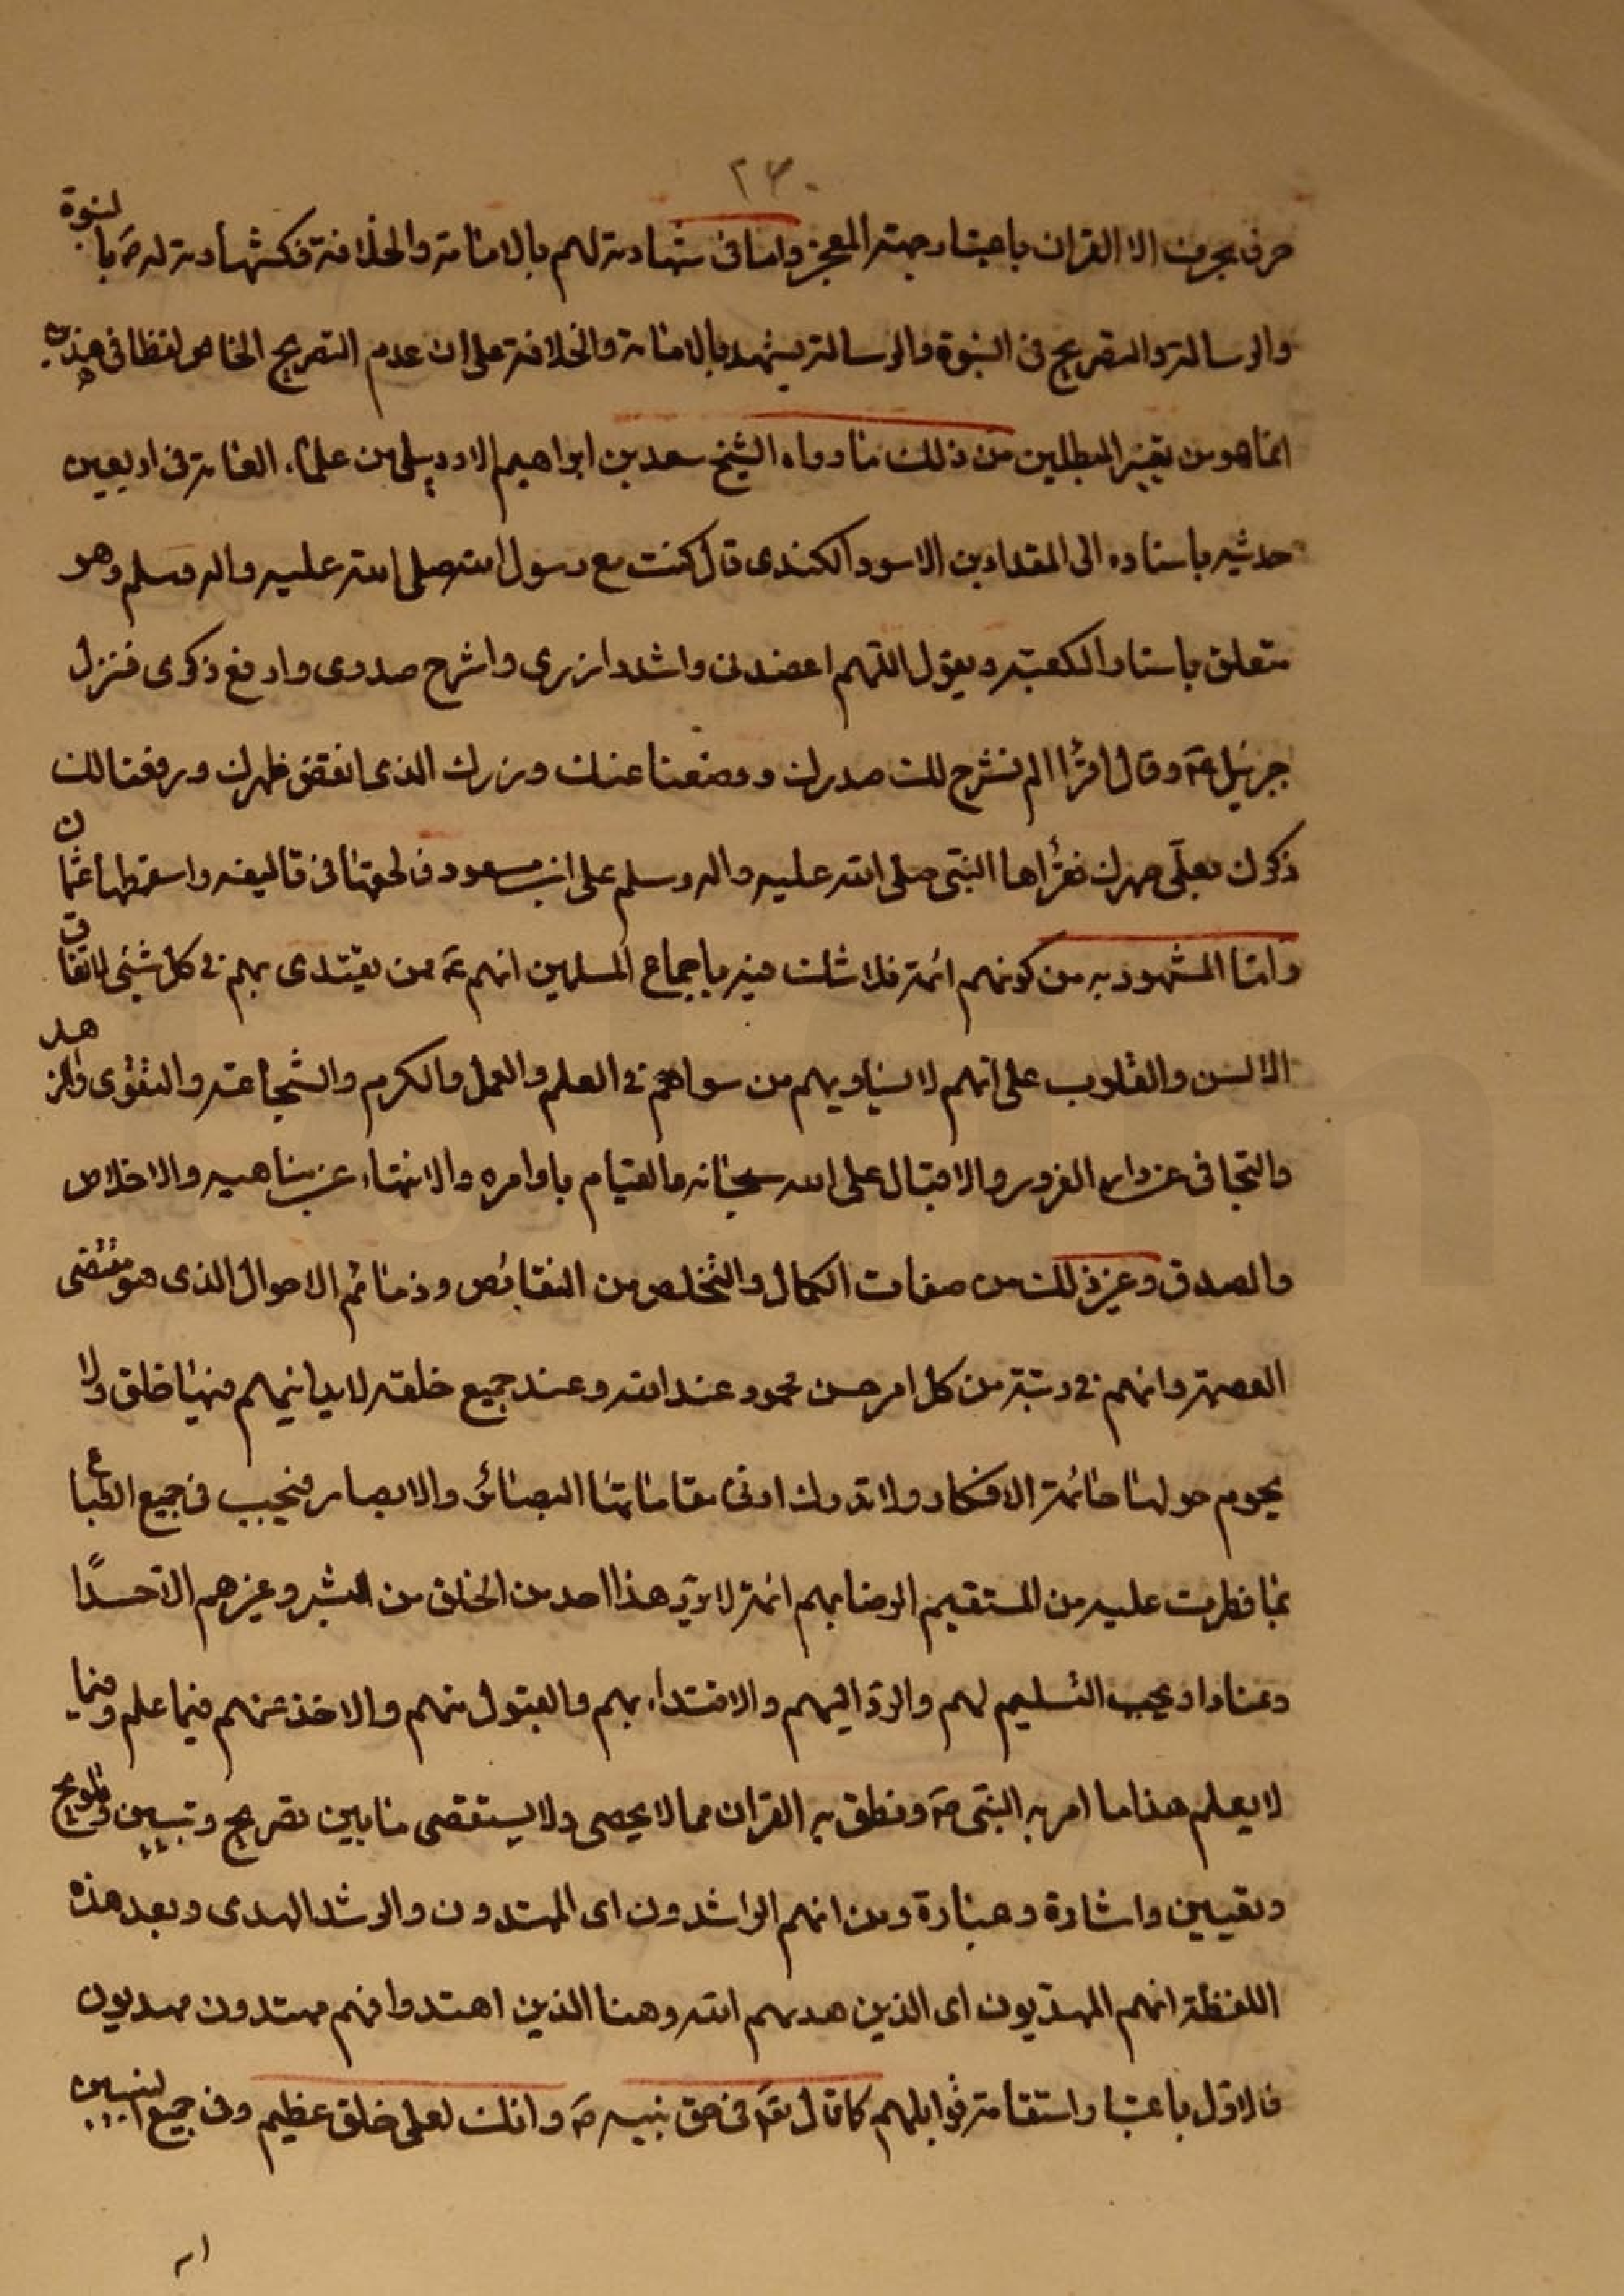 ٢٣٠
حرف بحرف الا القران باعتبار جهة المعجز واما فى شهادته لهم بالامامة والخلافة فكشهادته له ص بالنبوة
والرسالة والتصريح فى النبوة والرسالة يشهد بالامامة والخلافة على ان عدم التصريح الخاص لفظا فى هذين
انما هو من تغيير المبطلين من ذلك ما رواه الشيخ سعد بن ابراهيم الاردبيلى من علماء العامة فى اربعين
حديثه باسناده الى المقداد بن الاسود الكندى قال كنت مع رسول الله صلى الله عليه واله وسلم وهو
متعلق باستار الكعبة ويقول اللهم اعضدنى واشدد ازرى واشرح صدرى وارفع ذكرى فنزل
جبرئيل ع وقال اقرأ الم نشرح لك صدرك ووضعنا عنك وزرك الذى انقض ظهرك ورفعنا لك
ذكرك بعلى صهرك فقرأها النبى صلى الله عليه واله وسلم على ابن مسعود فالحقها فى تاليفه واسقطها عثمان
واما المشهود به من كونهم ائمة فلا شك فيه باجماع المسلمين انهم ع ممن يقتدى بهم فى كل شئ لاتفاق
الالسن والقلوب على انهم لا يساويهم من سواهم فى العلم والعمل والكرم والشجاعة والتقوى والزهد
والتجافى عن دار الغرور والاقبال على الله سبحانه والقيام باوامره والانتهاء عن مناهيه والاخلاص
والصدق وغير ذلك من صفات الكمال والتخلص من النقائص وذمائم الاحوال الذى هو مقتضى
العصمة وانهم فى رتبة من كل امر حسن محمود عند الله وعند جميع خلقه لا يدانيهم فيها خلق ولا
يحوم حولها حائمة الافكار ولا تدرك ادنى مقاماتها البصائر والابصار فيجب فى جميع الطباع
بما فطرت عليه من المستقيم الرضا بهم ائمة لا يرد هذا احد من الخلق من البشر وغيرهم الا حسدًا
وعنادا ويجب التسليم لهم والرد اليهم والاقتداء بهم والقبول منهم والاخذ عنهم فيما علم وفيما
لا يعلم هذا ما امر به النبى ص ونطق به القران مما لا يحصى ولا يستقصى ما بين تصريح وتبيين وتلويح
وتعيين واشارة وعبارة ومن انهم الراشدون اى المهتدون والرشد الهدى وبعد هذه
اللفظة انهم المهديون اى الذين هديهم الله وهنا الذين اهتدوا فهم مهتدون مهديون
فالاول باعتبار استقامة قوابلهم كما قال تع فى حق نبيه ص وانك لعلى خلق عظيم وفى جميع النبيين